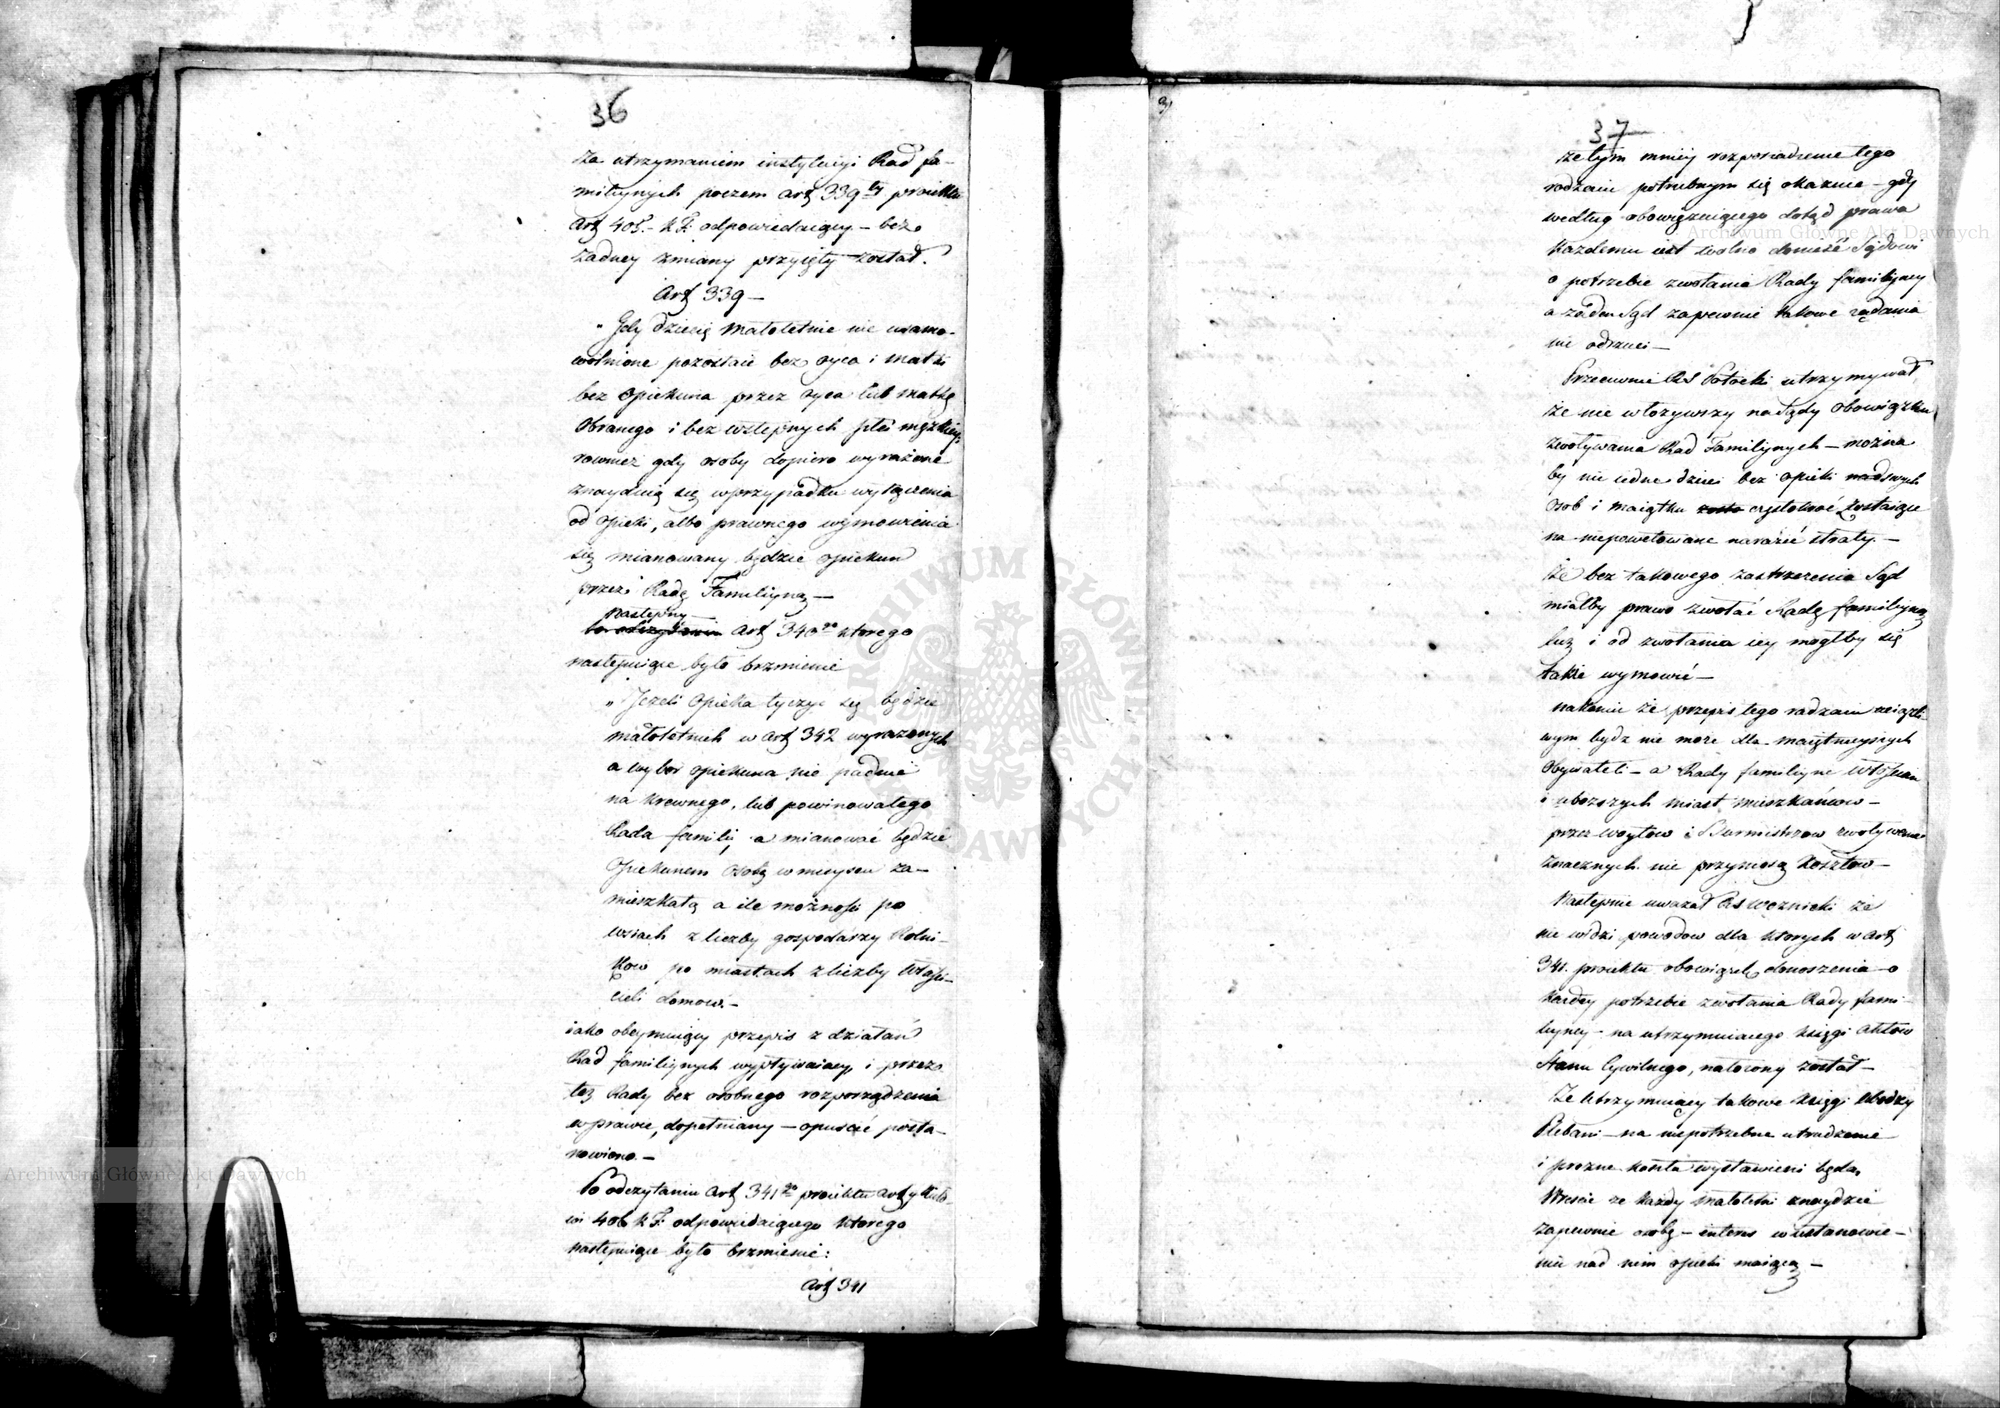 36
za utrzymaniem instytucyi Rad fa-
miliynych poczem art 339ty proiektu
Art 405.- K F. odpowiedaiący - bez
żadney zmiany przyięty został.
Art 339 -
"Gdy dziecię małoletnie nie usamo-
wolnione pozostaie bez oyca i matki
bez opiekuna przez oyca lub matkę
obranego i bez wstępnych płci męzkiey;
rownież gdy osoby dopiero wyrażone
znaydą się w przypadku wyłączenia
od opieki, albo prawnego wymowienia
się mianowany będzie opiekun
przez Radę Familiyną -
następny
Art 340go ktorego
następuiące było brzmienie
"Jeżeli opieka tyczyć się będzie
małoletnich w art 342 wyrażonych
a wybor opiekuna nie padnie
na krewnego, lub powinowatego
Rada familiyna mianować będzie
opiekunem osobę w mieyscu za-
mieszkałą a ile możności po
wsiach z liczby gospodarzy Rolni-
kow po miastach z liczby właści-
cieli domow. -
iako obeymuiący przepis z działań
Rad familiynych wypływaiący i przez
też Rady bez osobnego rozporządzenia
w prawie, dopełniany - opuścić posta-
nowiono. -
Po odczytaniu Art 341go proiektu Artykuło-
wi 406 K F. odpowiedaiącego ktorego
następuiące było brzmienie:
Art 341
37
że tym mniey rozporządzenie tego
rodzaiu potrzebnym się okazuie - gdy
według obowiązuiącego dotąd prawa
każdemu iest wolno donieść Sądowi
o potrzebie zwołania Rady familiyney
a żaden Sąd zapewnie takowe żądania
nie odrzuci -
Przeciwnie RS Potocki utrzymywał,
że nie włożywszy na Sędy obowiązku
zwoływania Rad Familiynych - można
by nie iedne dzieci bez opieki nad swych
osob i maiątku czystość zostaiące
na niepowetowane narazić straty. -
że bez takowego zastrzeżenia Sąd
miałby prawo zwołać Radę familiyną
lecz i od zwołania iey mogłby się
także wymowić -
nakoniec że przepis tego rodzaiu uciążli-
wym bydz nie może dla maiętnieyszych
Obywateli - a Rady familiyne włościan
i uboższych miast mieszkańcow -
przez woytow i Burmistrzow zwoływane
znacznych nie przyniosą kosztow -
Następnie uważał RS Woznicki że
nie widzi powodow dla ktorych w art
341. proiektu obowiązek donoszenia o
każdey potrzebie zwołania Rady fami-
liyney - na utrzymuiącego księgi Aktow
Stanu Cywilnego, nałożony został -
że utrzymuiący takowe księgi
Plebani - na niepotrzebne utrudzenie
i prozne koszta wystawieni będą.
Wreście że każdy małoletni znaydzie
zapewnie osobę - interes w ustanowie-
niu nad nim opieki maiącą -
Archiwum Główne Akt Dawnych
Archiwum Główne Akt Dawnych
ARCHIWUM GŁÓWNE AKT DAWNYCH